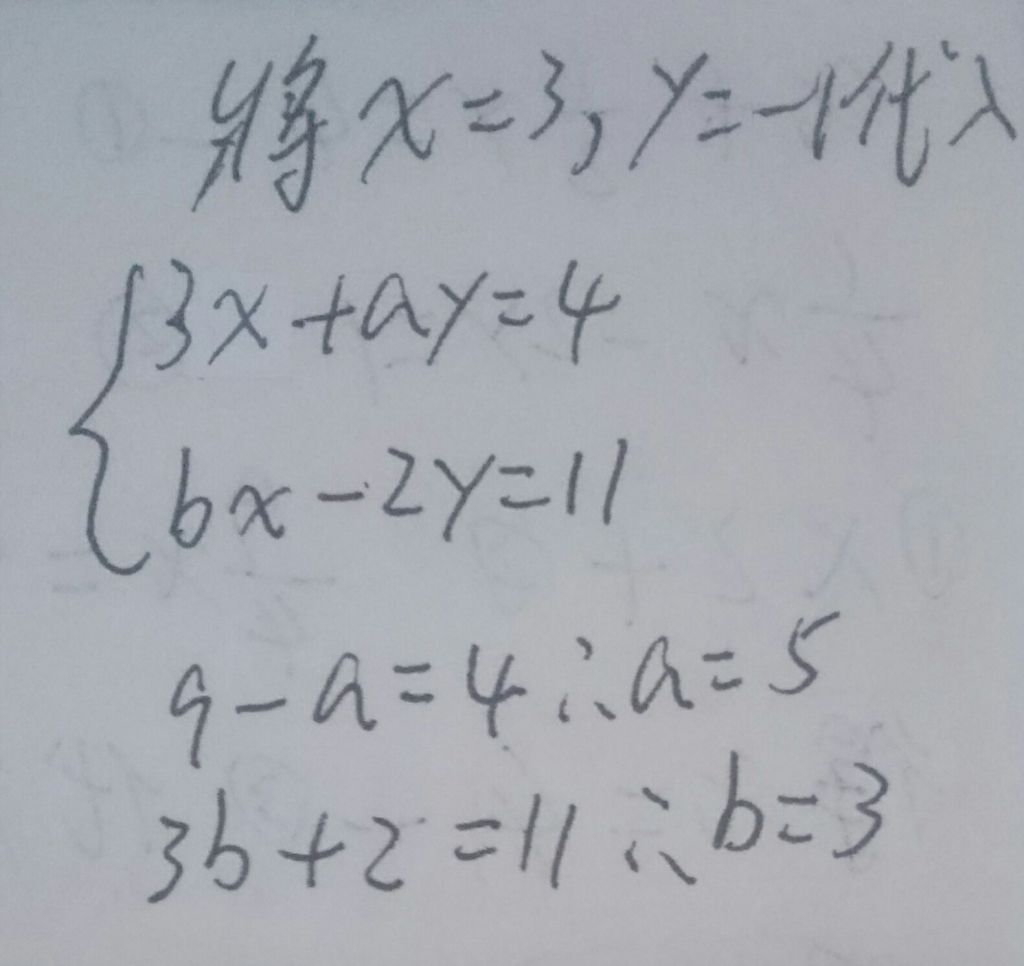 将x=3,y=-1代入
3x+ay=4
bx-2y=11
9-a=4∴a=5
3b+2=11∴b=3